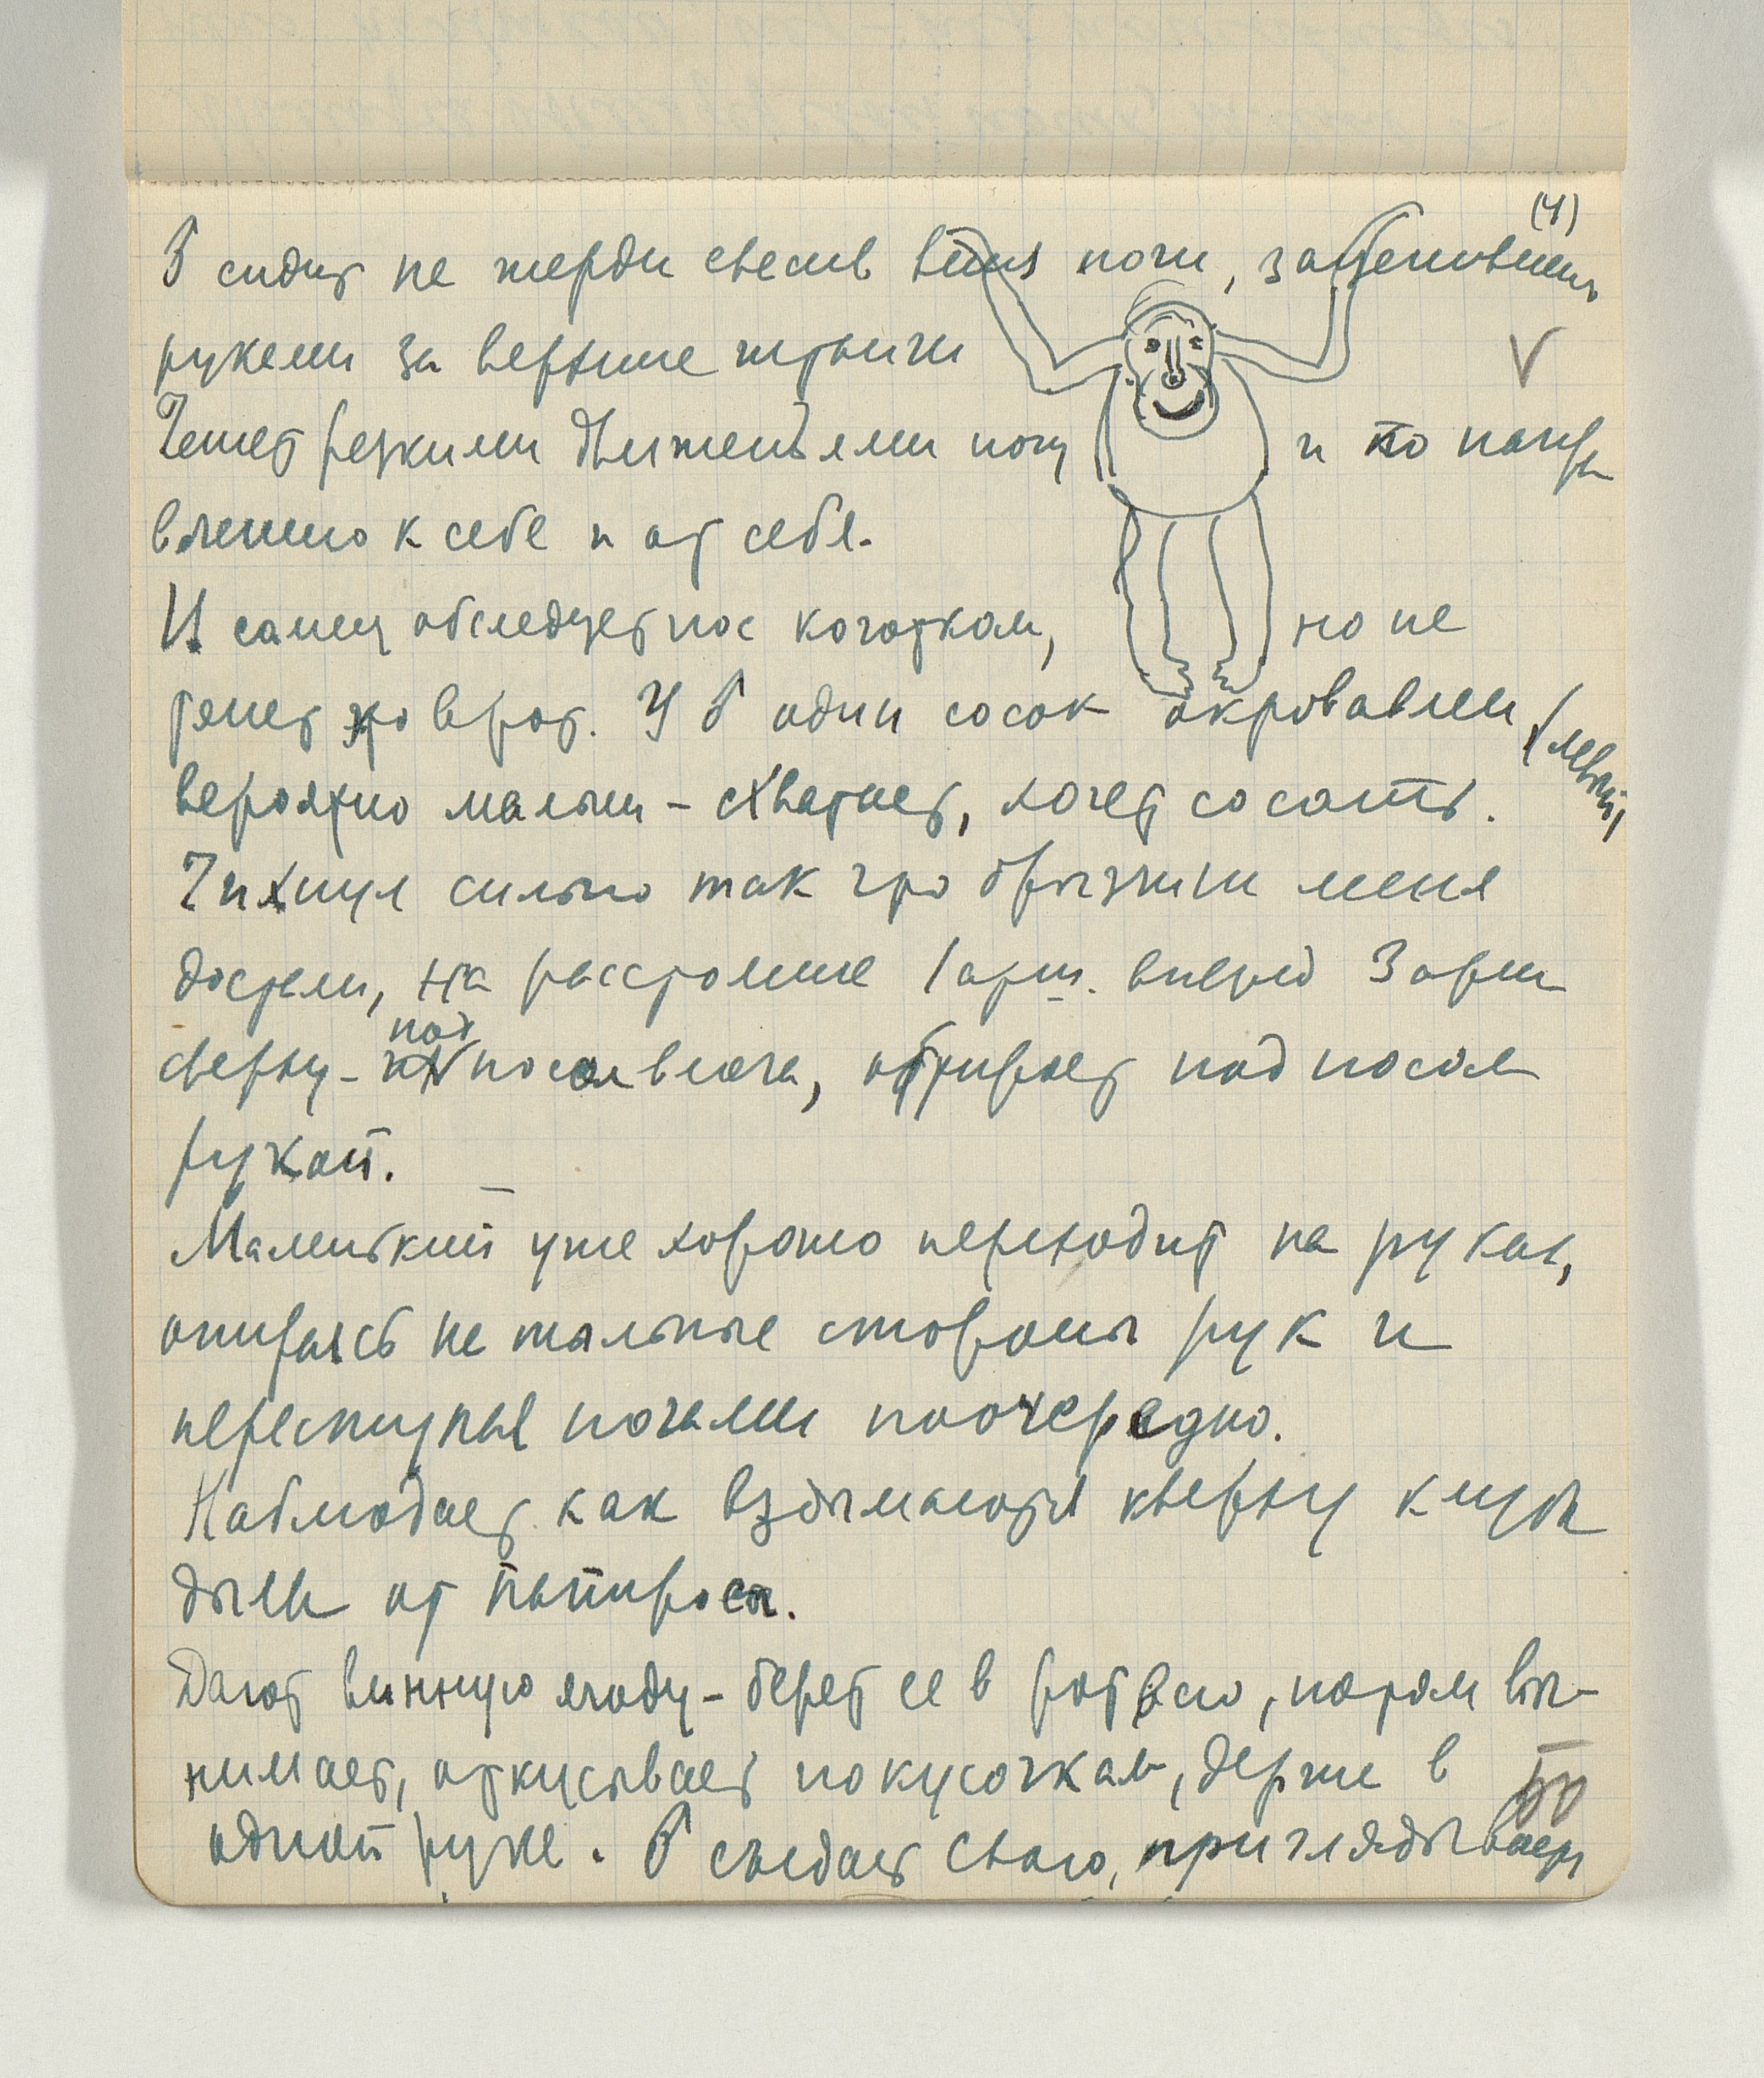 (4)
сидит на жерди свесив вниз ноги, зацепившись
руками за верхние
Чешет резкими движеньями ногу и по напра
влению к себе и от себя.
И самец обследует нос коготком, но не
тянет в рот. У один сосок окровавлен, (левый)
вероятно малыш - схватает, хочет сосать.
Чихнул сильно так что брызги меня
достали, на расстояние 1 арш. вперед
сверху - под носом влага, обтирает под носом
рукой.
Маленький уже хорошо переходит на руках,
опираясь на тыльные стороны рук и
переступая ногами поочередно.
Наблюдает как вздымаются кверху клубы
дыма от папиросы.
Дают винную ягоду - берет ее в рот всю, потом вы-
нимает, откусывает по кусочкам, держа в
одной руке. съедает свою, приглядывает